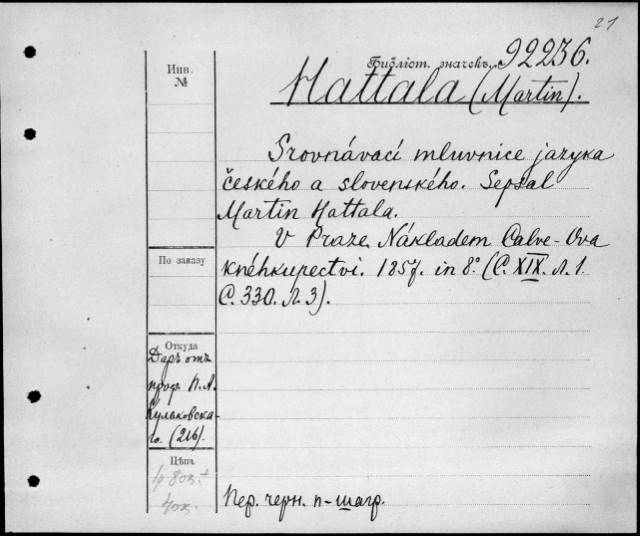 21
Библіот. значекъ 92236.
Инв.
№
Hattala (Martin).
Srovnávací mluvnice jazyka
českého a slovenského. Sepsal
Martin Hattala.
V Praze. Nákladem Calve-Ova
knéhkupectví. 1857. in 8° (С. XIX. Л. 1.
С. 330. Л. 3).
По заказу
Откуда
Даръ отъ
проф. П. А.
Кульковска-
го. (216).
Цѣна
40к.
Пер. черн. п-шагр.